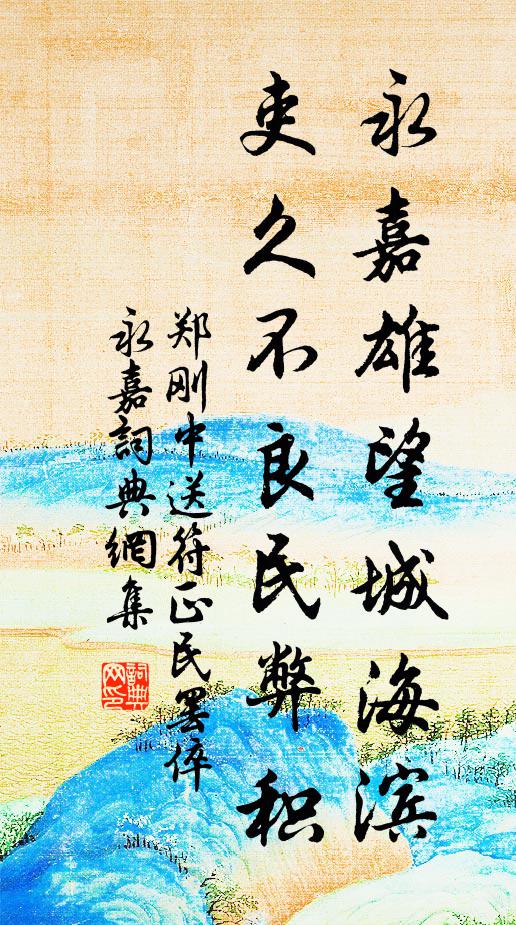 永嘉雄望城海滨
吏久不良民弊积
郑刚中送符正民罢倅
永嘉詞典網集
詞典
网印